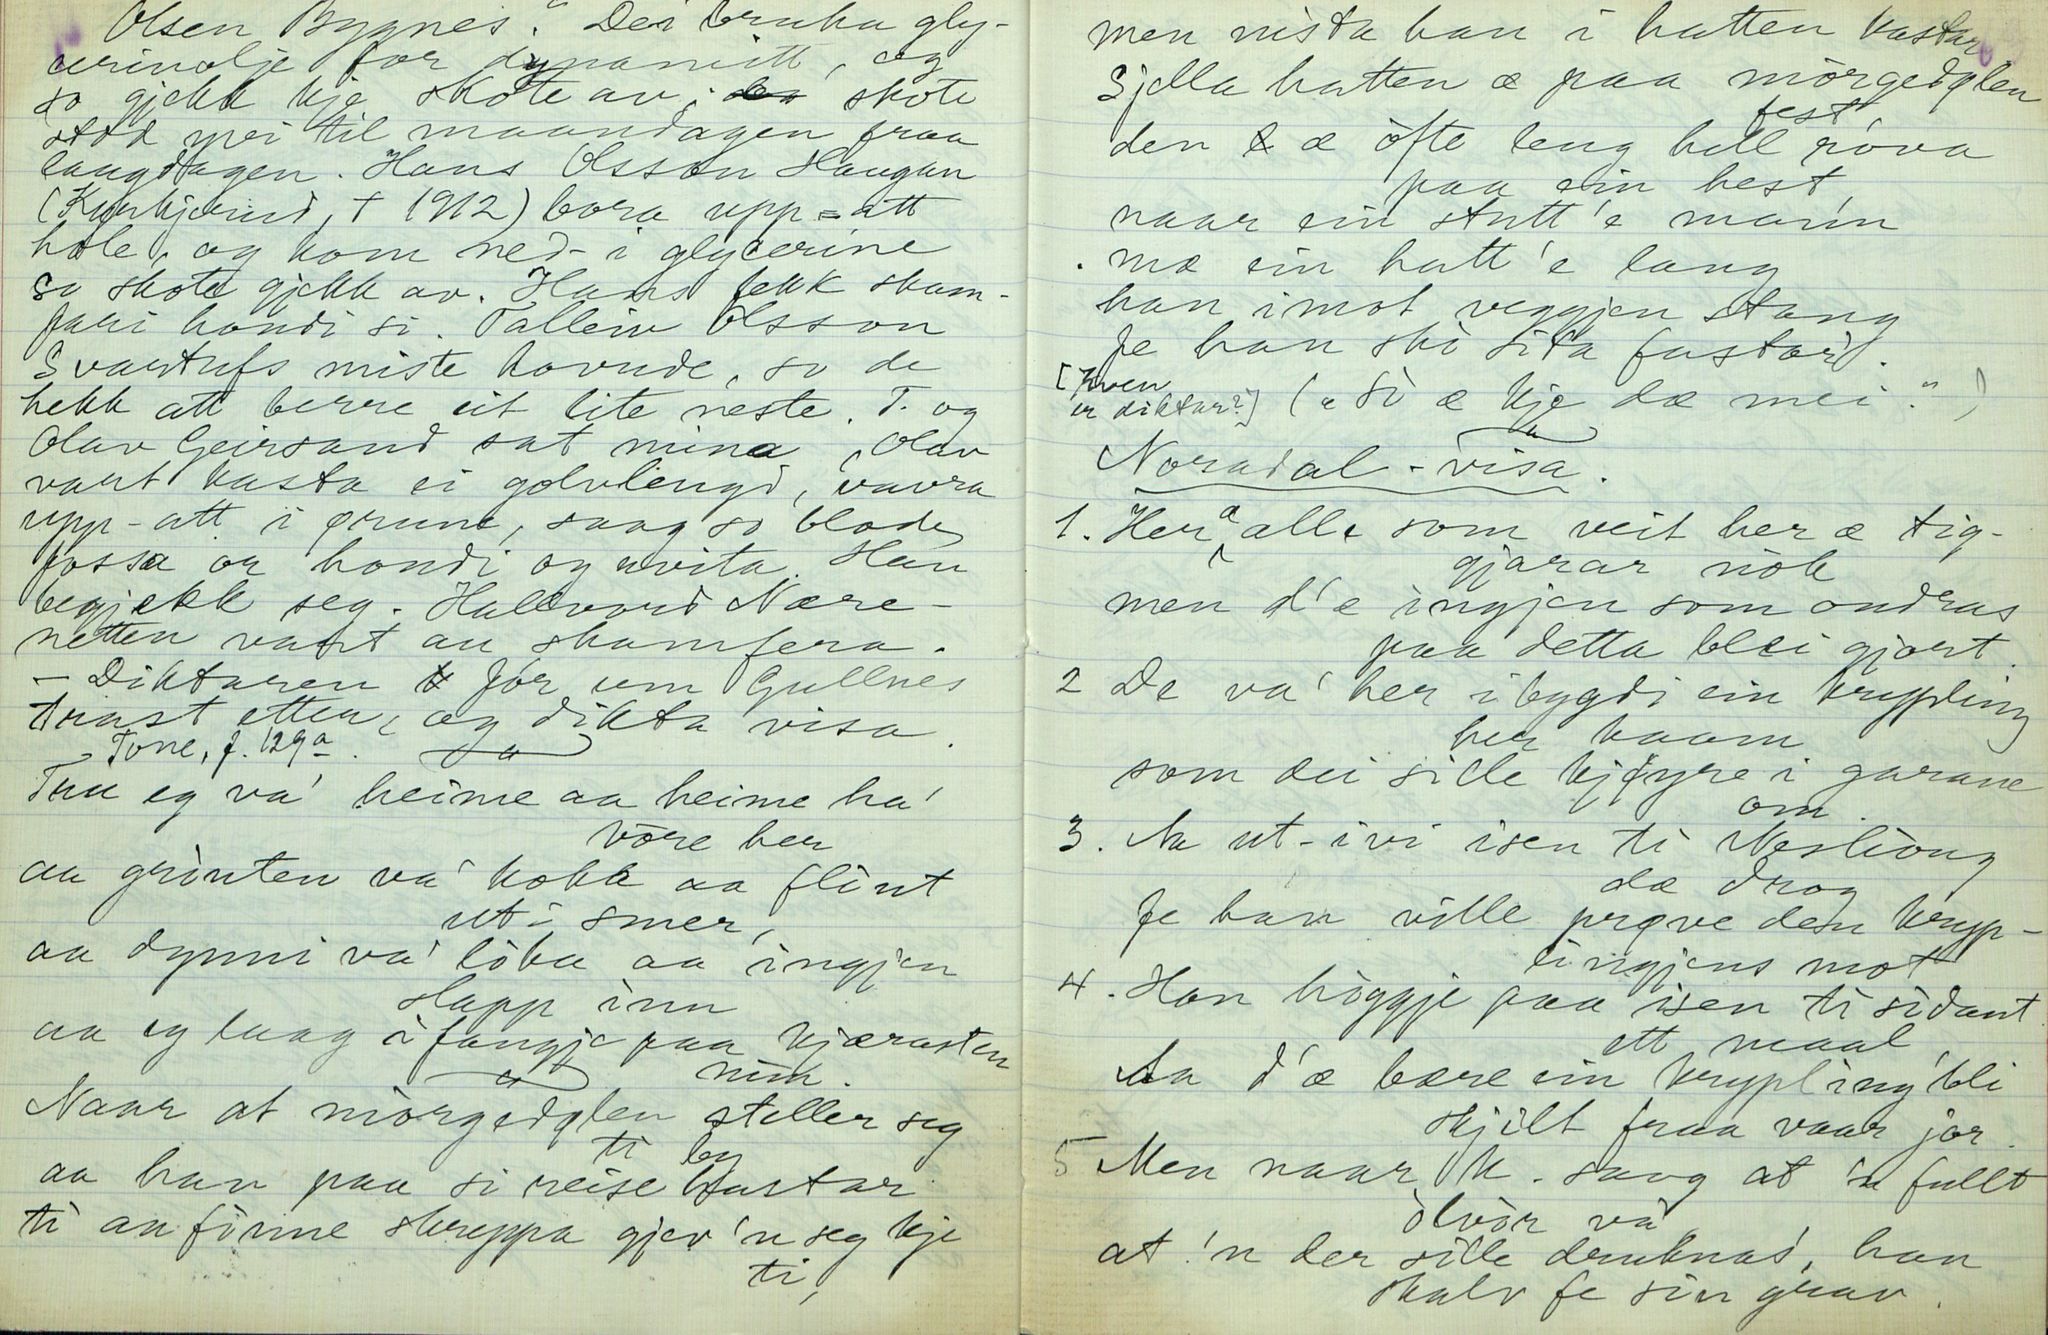 Olsen Bygnes." Dei bruka gly-
cerinolje for dynamitt, og
so gjekk kje skote av; skote
stod yvi til maandagen fraa
laugdagen. Hans Olsson Haugan
(Kyrkjerud, † 1912) bora upp-att
hole, og kom ned-i glycerine
so skote gjekk av. Hans fekk skam-
fari hondi si. Talleiv Olsson
Svartufs miste hovude, so de
hekk att berre eit lite neste. T. og
Olav Geirsand sat mina, Olav
vart kasta ei golvlengd, vavra
upp-att i ørune, saag so blode
fossa or hondi og uvita. Han
begjekk seg. Hallvord Nære-
netten vart au skamfera.
- Diktaren fór um Gullnes
trast etter, og dikta visa.
- Tone, f. 129a.
Traa eg va' heime aa heime ha'
vore her
aa grinten va' kokk aa flint
ut i smer,
aa dynni va' loka aa ingjen
slapp inn
aa eg laag i fangje paa kjærasten
min.
Naar at mòrgedølen steller seg
ti by
aa han paa si reise hastar
ti aa finne skreppa gjev 'n seg kje
ti,
men nista han i hatten kastar
Sjella hatten æ paa mòrgedølen
fest
den æ ofte leng hell róva
paa ein hest
naar ein stutt 'e marin
mæ ein hatt 'e lang
han imot veggjen stang
fe han ski sita fastar.
[Kven
er diktar?] („Sò æ kje dæ mei.")
Noradal-visa.
1. Her a alle som veit her æ tig-
gjarar nòk
men d'e ingjen som ondras
paa detta blei gjort.
2 De va' her i bygdi ein krypling
her kaam
som dei sille kjøyre i garane
om.
3. Aa ut-ivi isen ti Nesliváng
dæ drog
fe han ville prøve den kryp-
lingjens mot
4. Han hòggje paa isen ti sidant
ett maal
Aa d'æ bære ein krypling bli
skjilt fraa vaar jor.
5 Men naar K. saag at 'n fullt
òlvòr va'
at 'n der sille drukna', han
skalv fe sin grav.